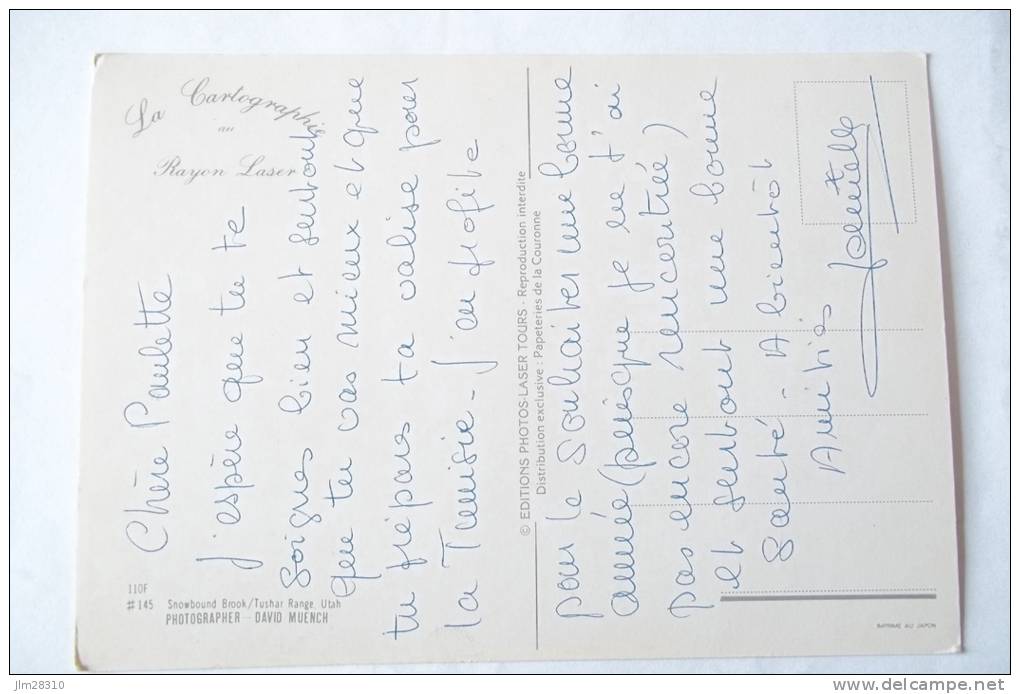 La Cartographie
au
Rayon Laser
Chère Paulette
J'espère que tu te
soignes bien et surtout
que tu vas mieux et que
tu prépares ta valise pour
la Tunisie - J'en profite
110F
#145 Snowbound Brook/Tushar Range, Utah
PHOTOGRAPHER - DAVID MUENCH
© EDITIONS PHOTOS-LASER TOURS - Reproduction interdite
Distribution exclusive : Papeteries de la Couronne
pour te souhaiter une bonne
année (puisque je ne t'ai
pas encore rencontrée)
et surtout une bonne
Santé - A bientôt
Amitiés
IMPRIME AU JAPON
jlm28310
delcampe.net